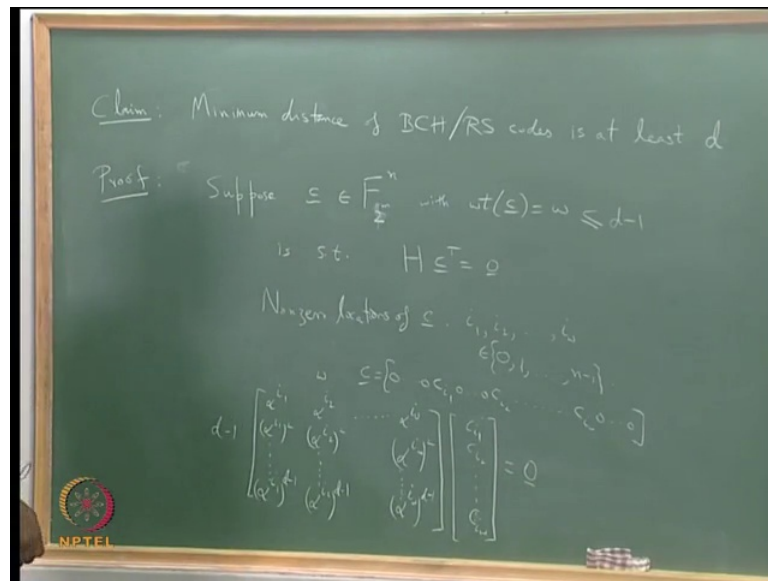 Claim: Minimum distance of BCH/RS codes is at least d
Proof: Suppose c ∈ F_{2^m}^n with wt(c) = w ≤ d-1
is s.t. H c^T = 0
Nonzero locations of c: i_1, i_2, ..., i_w
∈ {0, 1, ..., n-1}
w c = [0 0 c_{i_1} 0 .. 0 c_{i_2} ...... c_{i_w} 0 ... 0]
d-1 [α^{i_1} α^{i_2} ...... α^{i_w}] [c_{i_1}]
[(α^{i_1})^2 (α^{i_2})^2 (α^{i_w})^2] [c_{i_2}] = 0
[(α^{i_1})^{d-1} (α^{i_2})^{d-1} (α^{i_w})^{d-1}] [c_{i_w}]
NPTEL